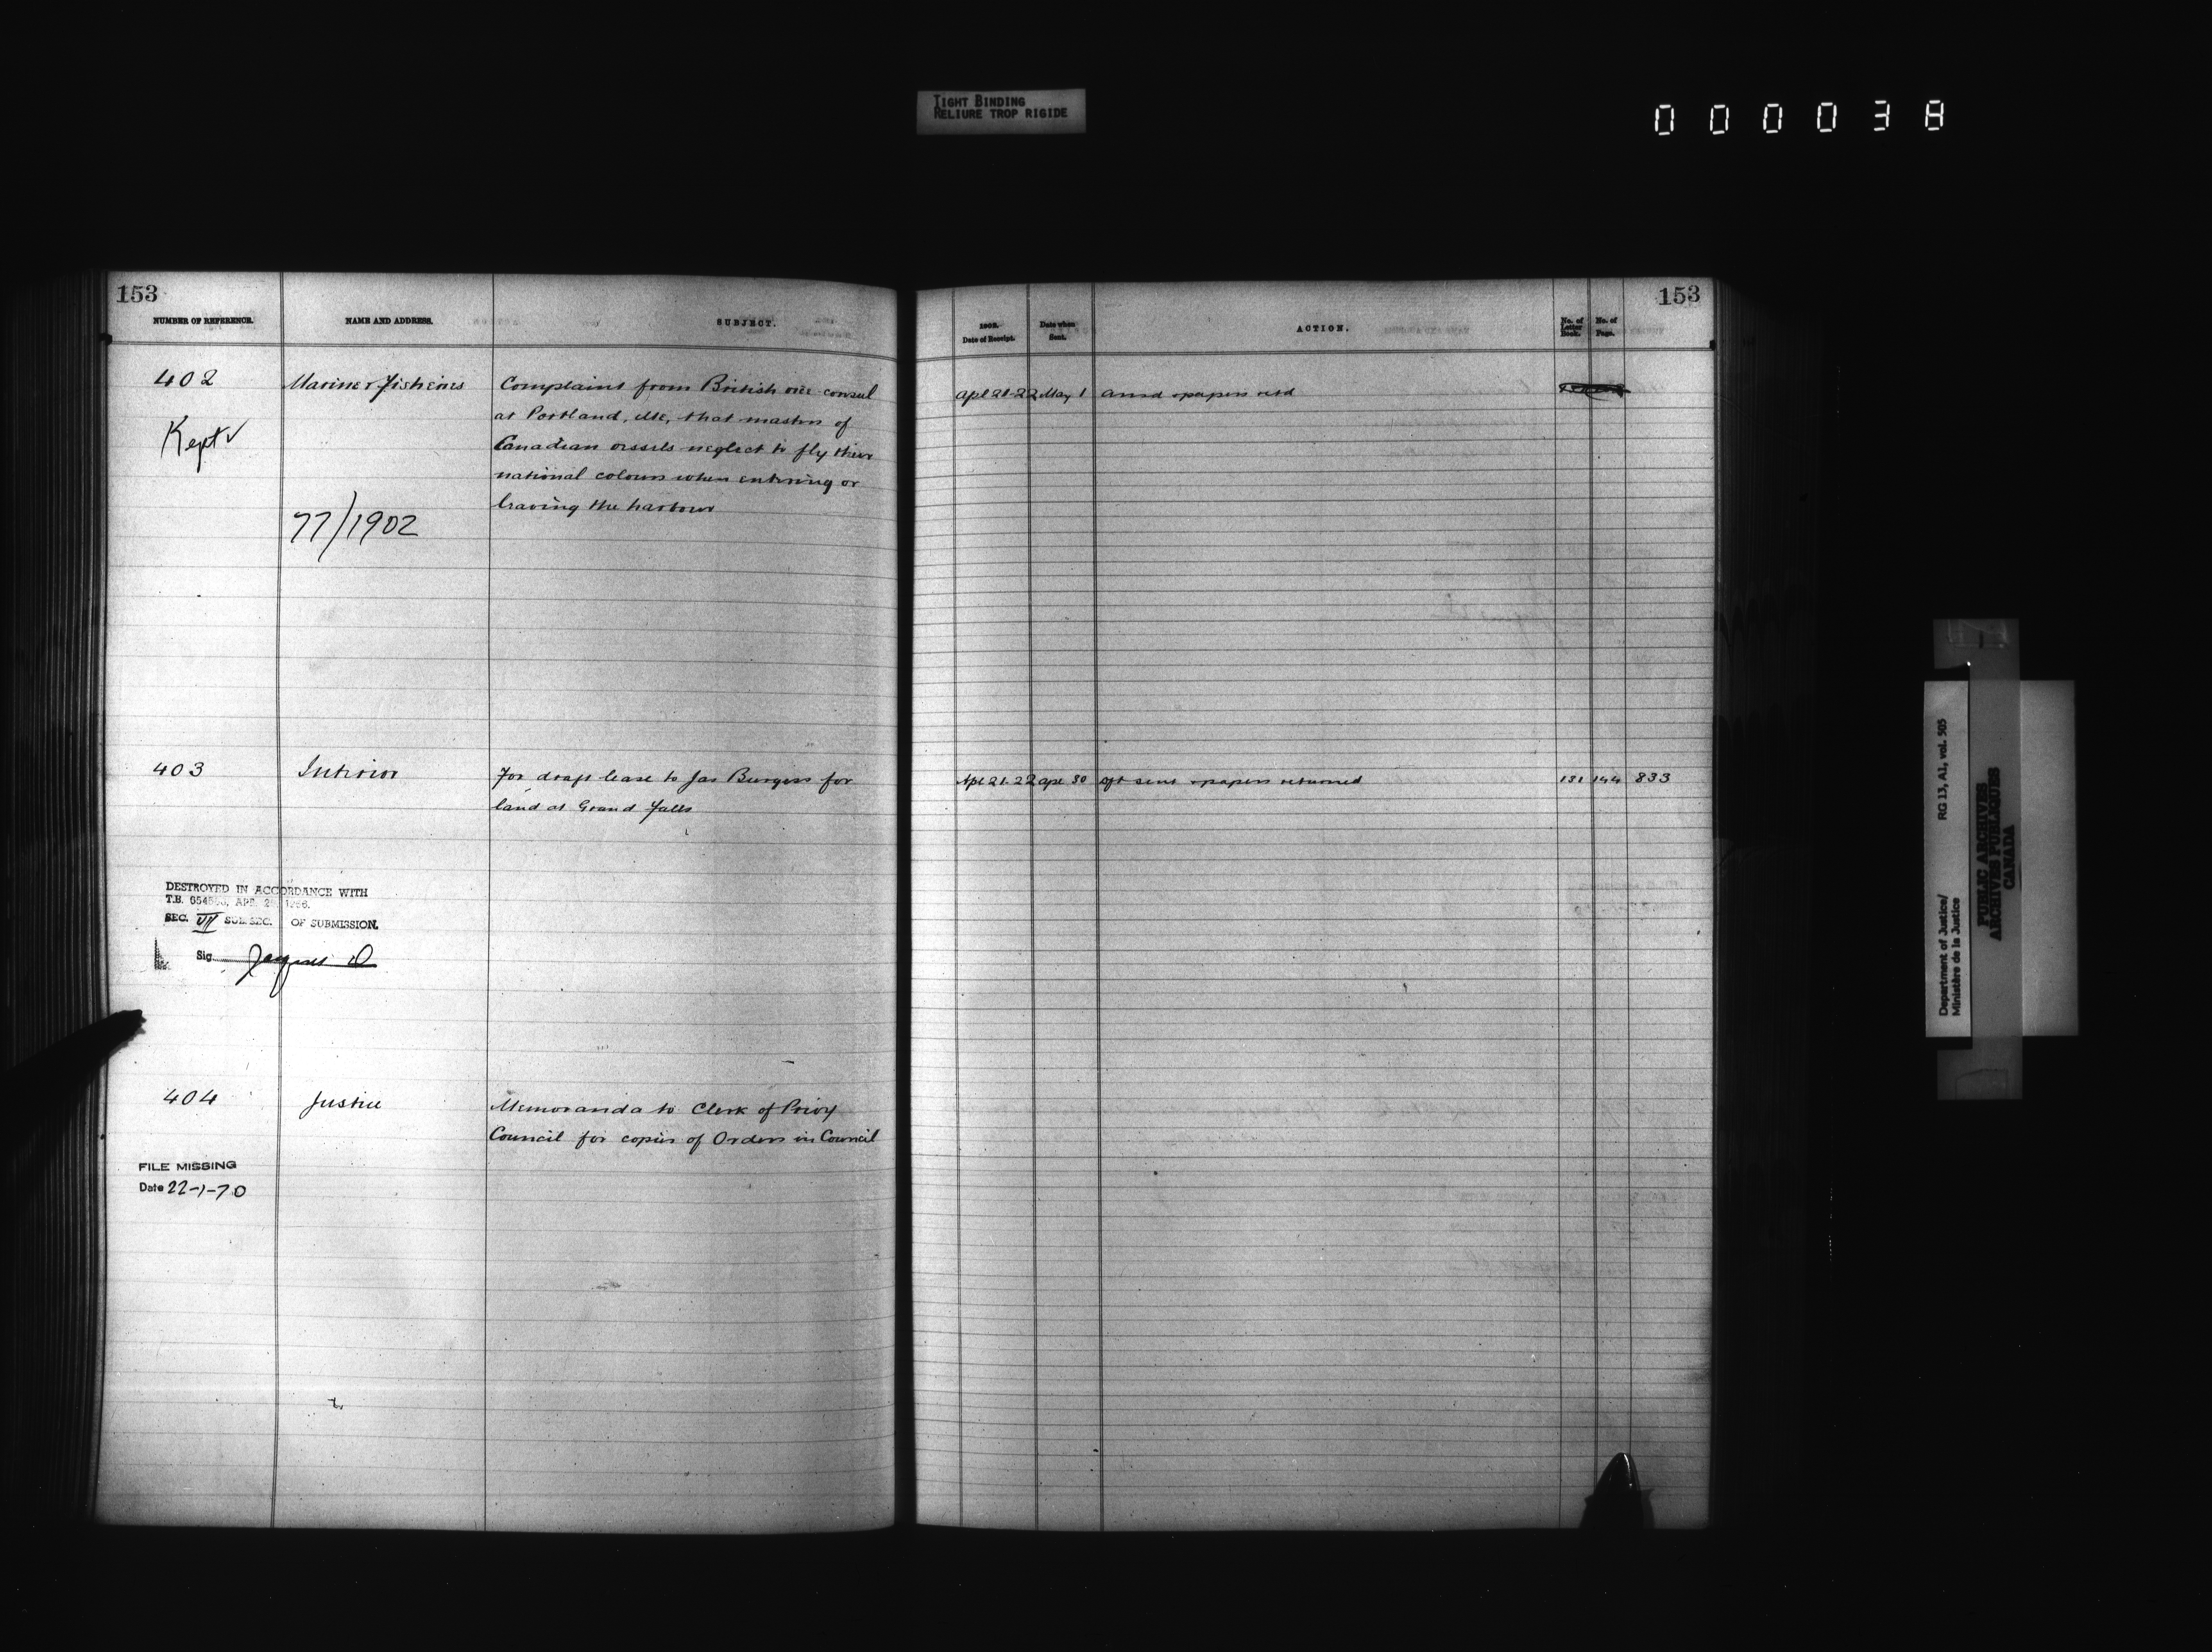 TIGHT BINDING
RELIURE TROP RIGIDE
000038
153
NUMBER OF REFERENCE.
NAME AND ADDRESS.
SUBJECT.
402
Marine & Fisheries
Complaint from British vice-consul
at Portland, Me, that masters of
Canadian vessels neglect to fly their
national colours when entering or
leaving the harbour
Kept ✓
77/1902
403
Interior
For draft lease to Jas Burgess for
land at Grand Falls
DESTROYED IN ACCORDANCE WITH
T.B. APR.
SEC. VII SUB.SEC. OF SUBMISSION.
Sig.
404
Justice
Memoranda to Clerk of Privy
Council for copies of Orders in Council
FILE MISSING
Date 22-1-70
153
1902.
Date of Receipt.
Date when
Sent.
ACTION.
No. of
Letter
Book.
No. of
Page.
Apl 21-22 May 1 & papers retd
Apl 21-22 Apl 30 dft sent & papers returned 131 144 833
Department of Justice/
Ministère de la Justice
RG 13, A1, vol. 505
PUBLIC ARCHIVES
ARCHIVES PUBLIQUES
CANADA